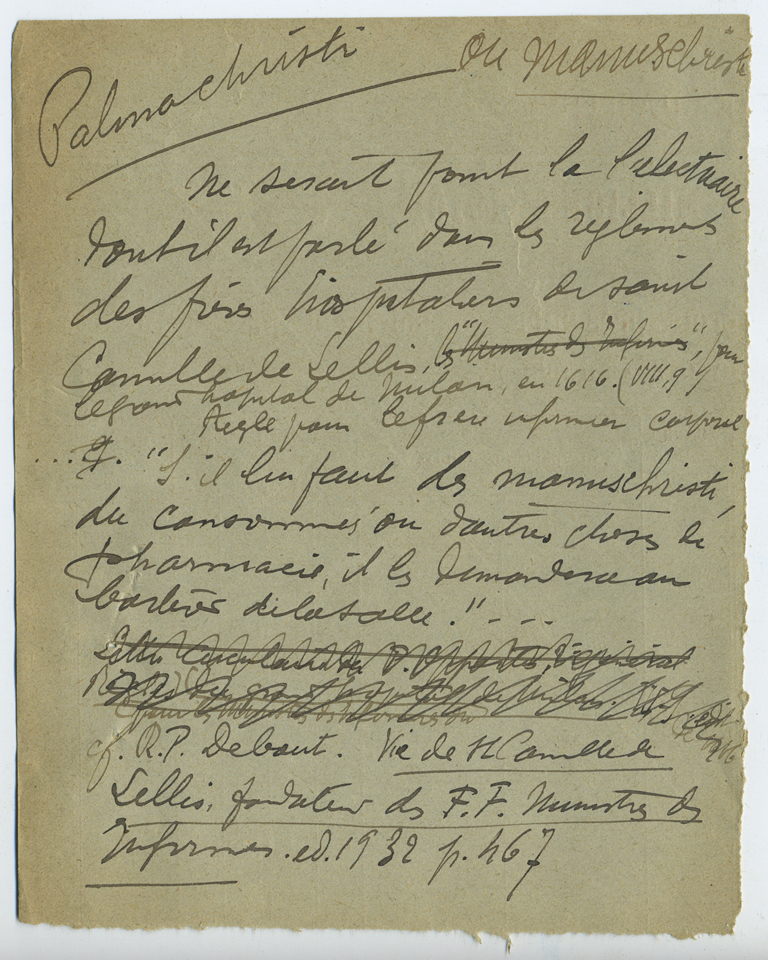 Palmachristi ou manuschristi
Ne serait point la l'électuaire
dont il est parlé dans les règlements
des frères hospitaliers de saint
Camille de Lellis, les "Ministres des Infirmes", pour
le grand hôpital de Milan, en 1616. (VIII, 9)
Règle pour le frère infirmier corporel
... 9. "S'il lui faut des manuschristi,
du consommés ou d'autres choses de
pharmacie, il les demandera au
barbier de la salle." - - -
cf. R.P. Debout. Vie de St Camille de
Lellis, fondateur des F.F. Ministres des
Infirmes. ed. 1932 p. 467